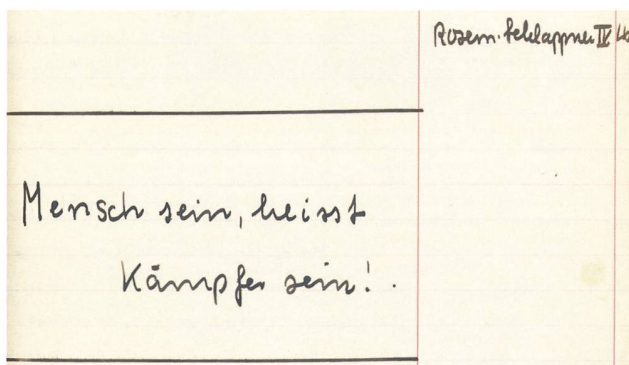 Rosem. Schlappner IV
Mensch sein, heisst
Kämpfer sein!.